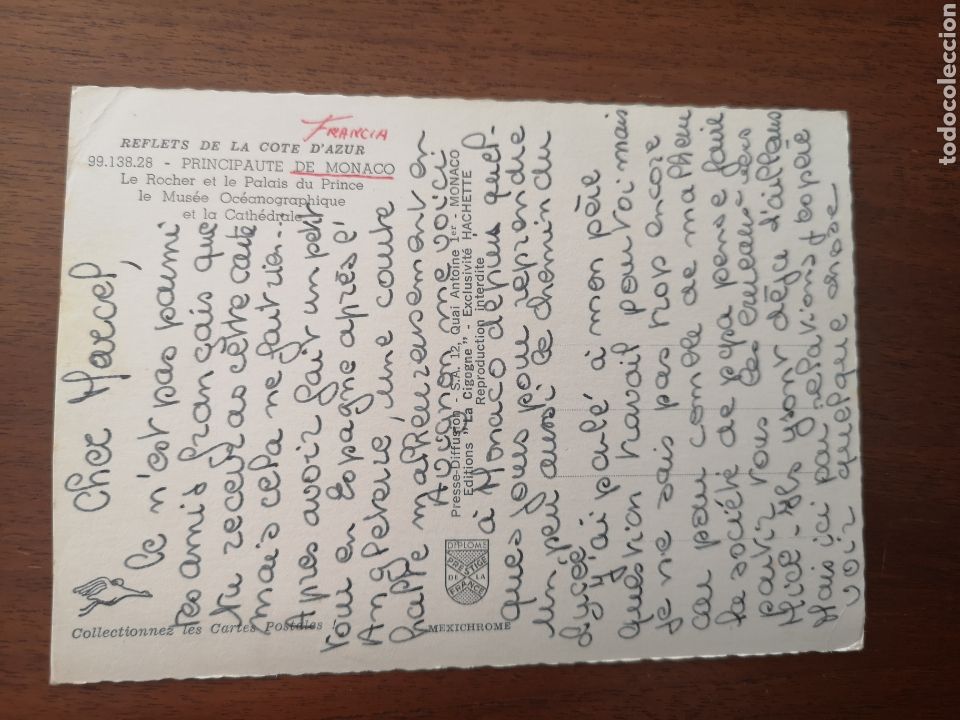 FRANCIA
REFLETS DE LA COTE D'AZUR
99.138.28 - PRINCIPAUTE DE MONACO
Le Rocher et le Palais du Prince
le Musée Océanographique
et la Cathédrale
Cher Marcel,
Ce n'est pas parmi
tes amis français que
tu recevras cette carte
mais cela ne fait rien...
Apres avoir fait un petit
tour en Espagne après l'
Angleterre une courte
halte malheureusement en
Avignon me voici
à Monaco depuis quel-
ques jours pour reprendre
un peu aussi le chemin du
lycée
J'ai parlé à mon père
question travail pour toi mais
je ne sais pas trop encore
car pour comble de malheur
la société de papa pense faire
partir tous les employés vers
Nice - Ils y sont déjà d'ailleurs
Mais ici par relations j'espère
voir quelque chose
Presse-Diffusion - S.A. 12, Quai Antoine 1er - MONACO
Editions "La Cigogne" - Exclusivité HACHETTE
Reproduction interdite
DIPLOME
PRESTIGE
DE LA
FRANCE
MEXICHROME
Collectionnez les Cartes Postales !
todocoleccion